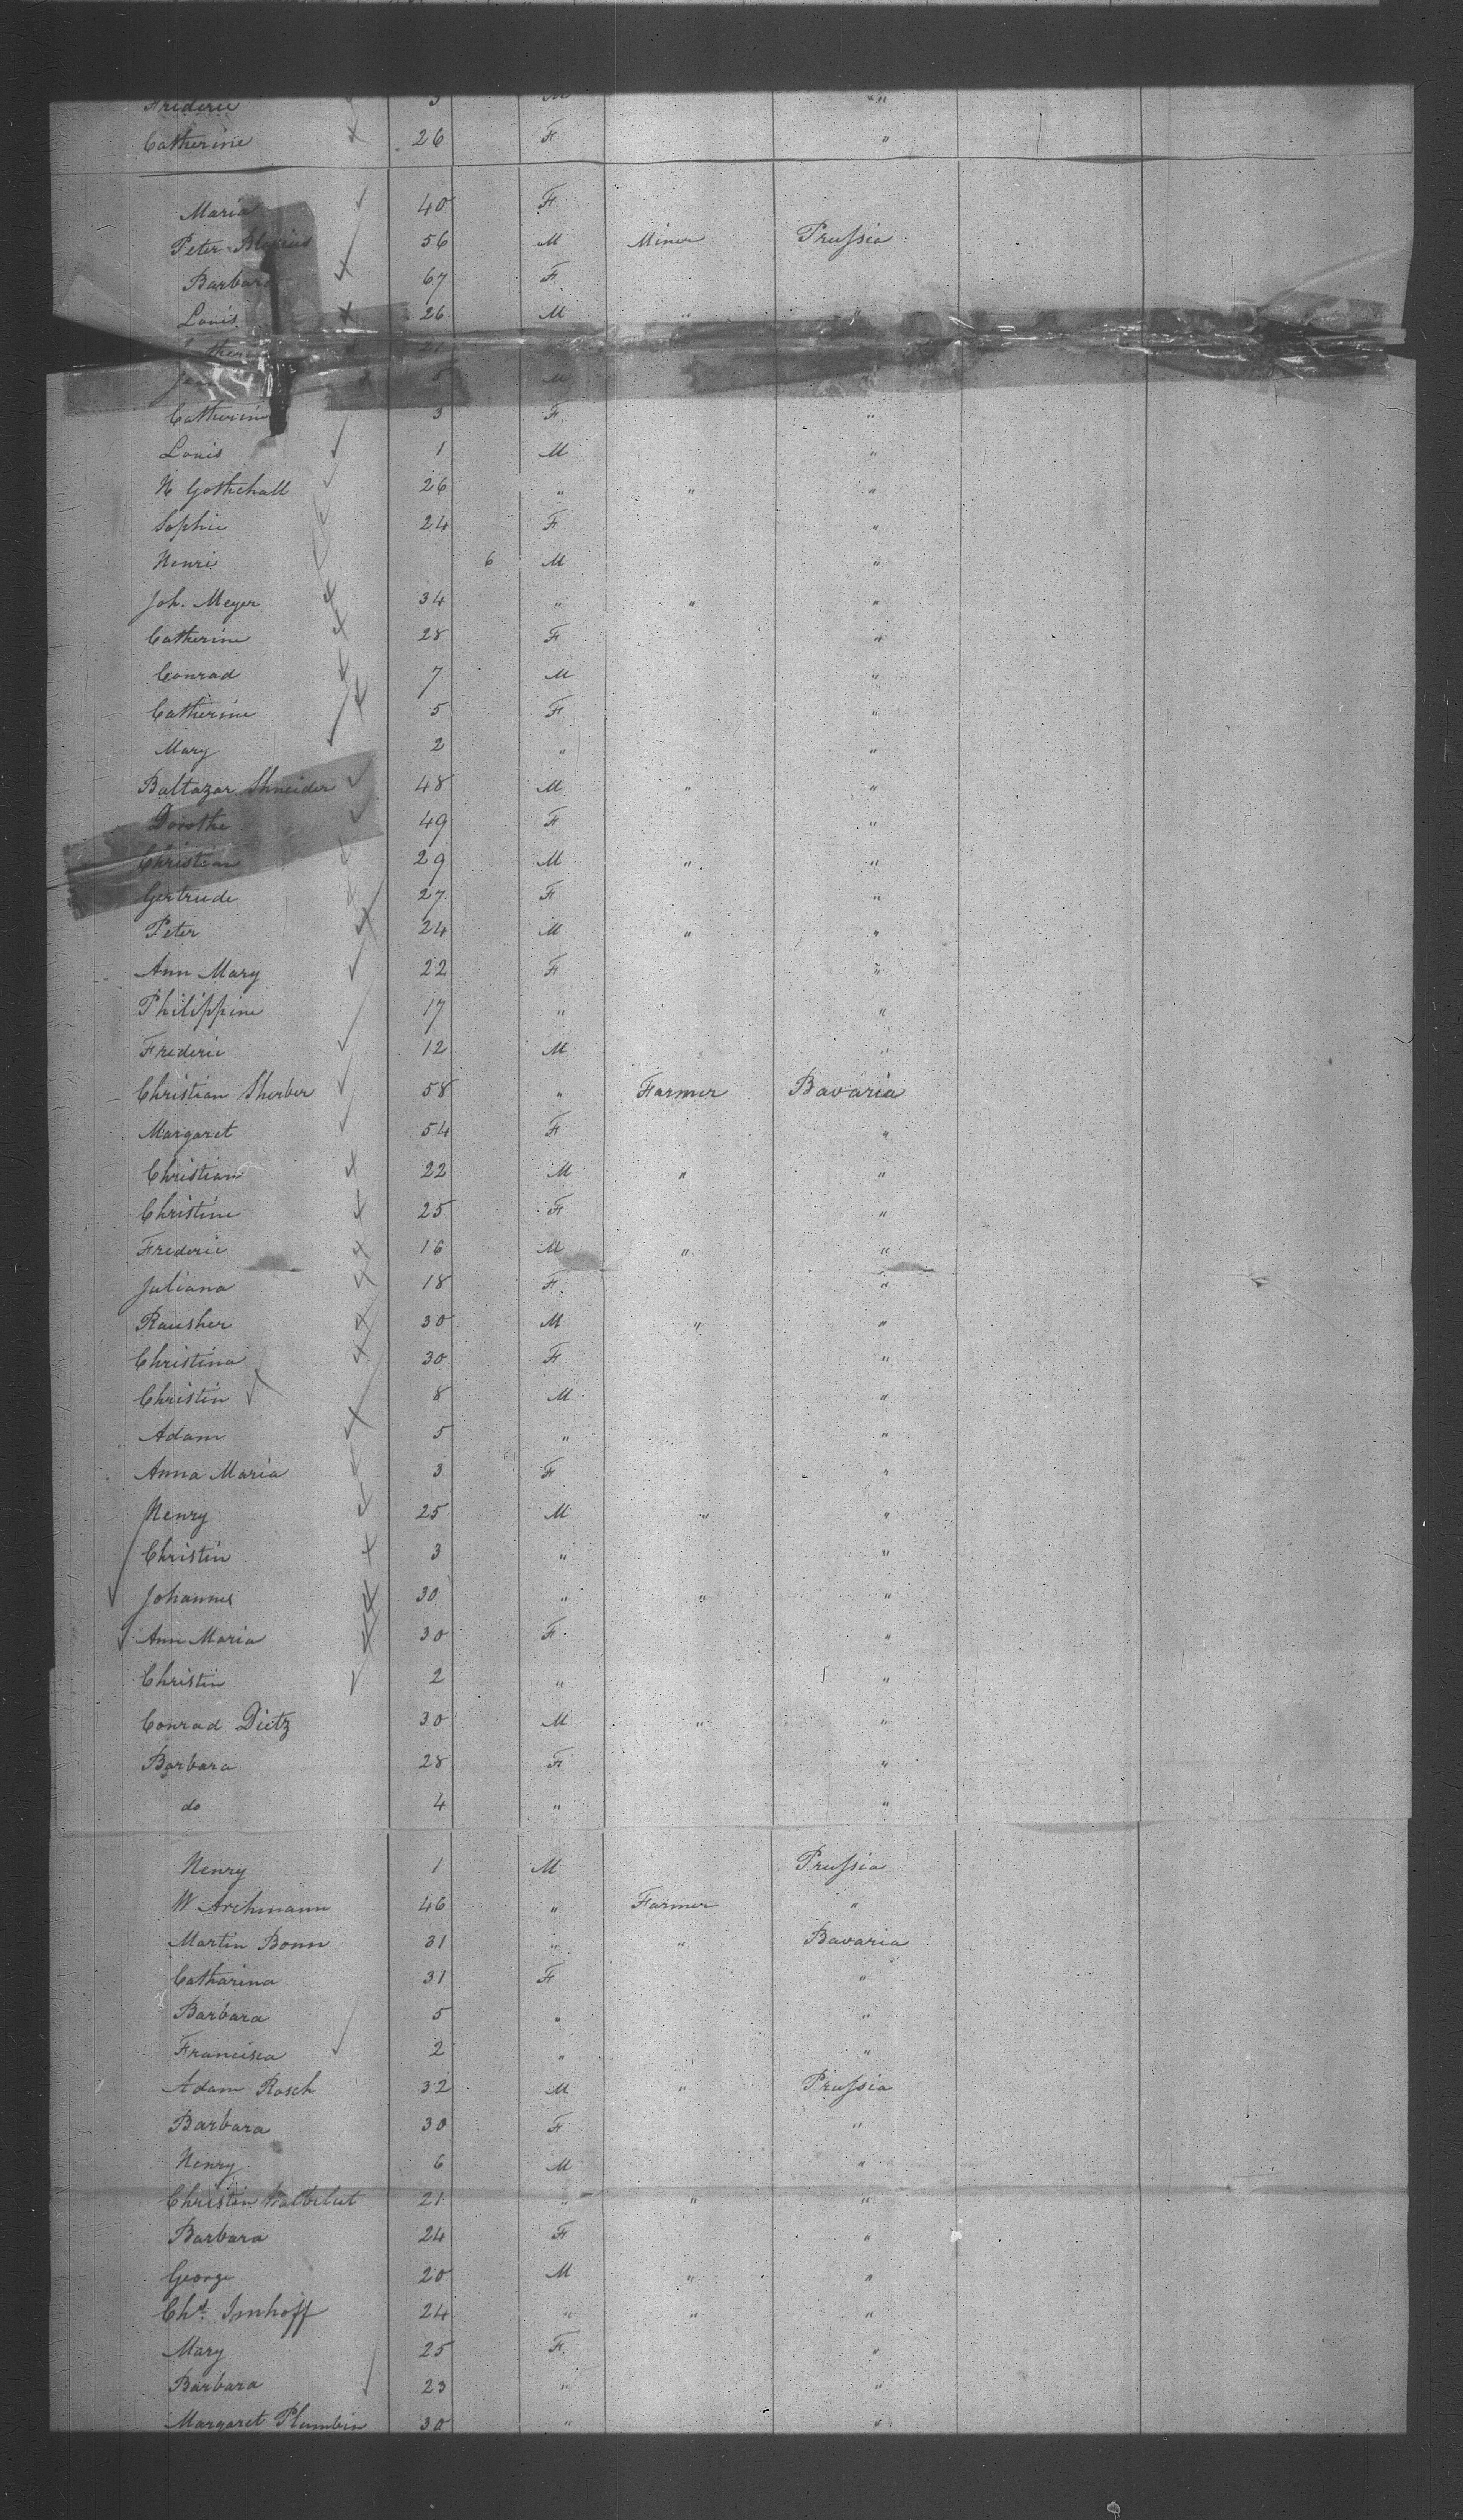 Frederic 3 M "
Catherine 26 F "
Maria 40 F
Peter 56 M Miner Prussia
Barbara 67 F
Louis 26 M " "
5 M
Catherine 3 F "
Louis 1 M "
H Gothchall 26 " " "
Sophie 24 F "
Henri 6 M "
Joh. Meyer 34 " " "
Catherine 28 F "
Conrad 7 M "
Catherine 5 F "
Mary 2 " "
Baltazar Shneider 48 M " "
Dorothe 49 F "
Christian 29 M " "
Gertrude 27 F "
Peter 24 M " "
Ann Mary 22 F "
Philippine 17 " "
Frederic 12 M "
Christian Sherber 58 " Farmer Bavaria
Margaret 54 F "
Christian 22 M " "
Christine 25 F "
Frederic 16 M " "
Juliana 18 F "
Rausher 30 M " "
Christina 30 F "
Christin 8 M "
Adam 5 " "
Anna Maria 3 F "
Henry 25 M " "
Christin 3 " "
Johannes 30 " " "
Ann Maria 30 F "
Christin 2 " "
Conrad Dietz 30 M " "
Barbara 28 F "
do 4 " "
Henry 1 M Prussia
W Archmann 46 " Farmer "
Martin Bonn 31 " " Bavaria
Catharina 31 F "
Barbara 5 " "
Francisca 2 " "
Adam Rosch 32 M " Prussia
Barbara 30 F "
Henry 6 M "
Christin 21 " " "
Barbara 24 F "
George 20 M " "
Chd. Imhoff 24 " " "
Mary 25 F "
Barbara 23 " "
Margaret Plumbin 30 " "